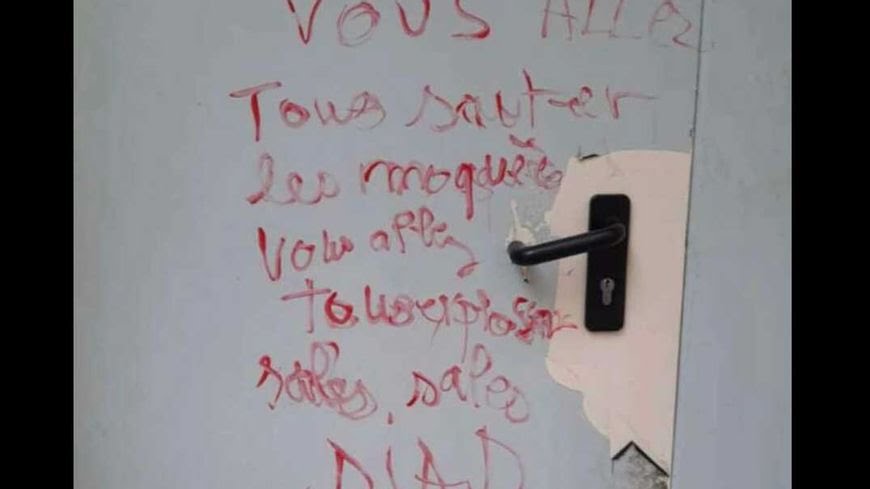 VOUS ALLEZ
Tous sauter
les moquées
Vous allez
tous exploser
sales, sales